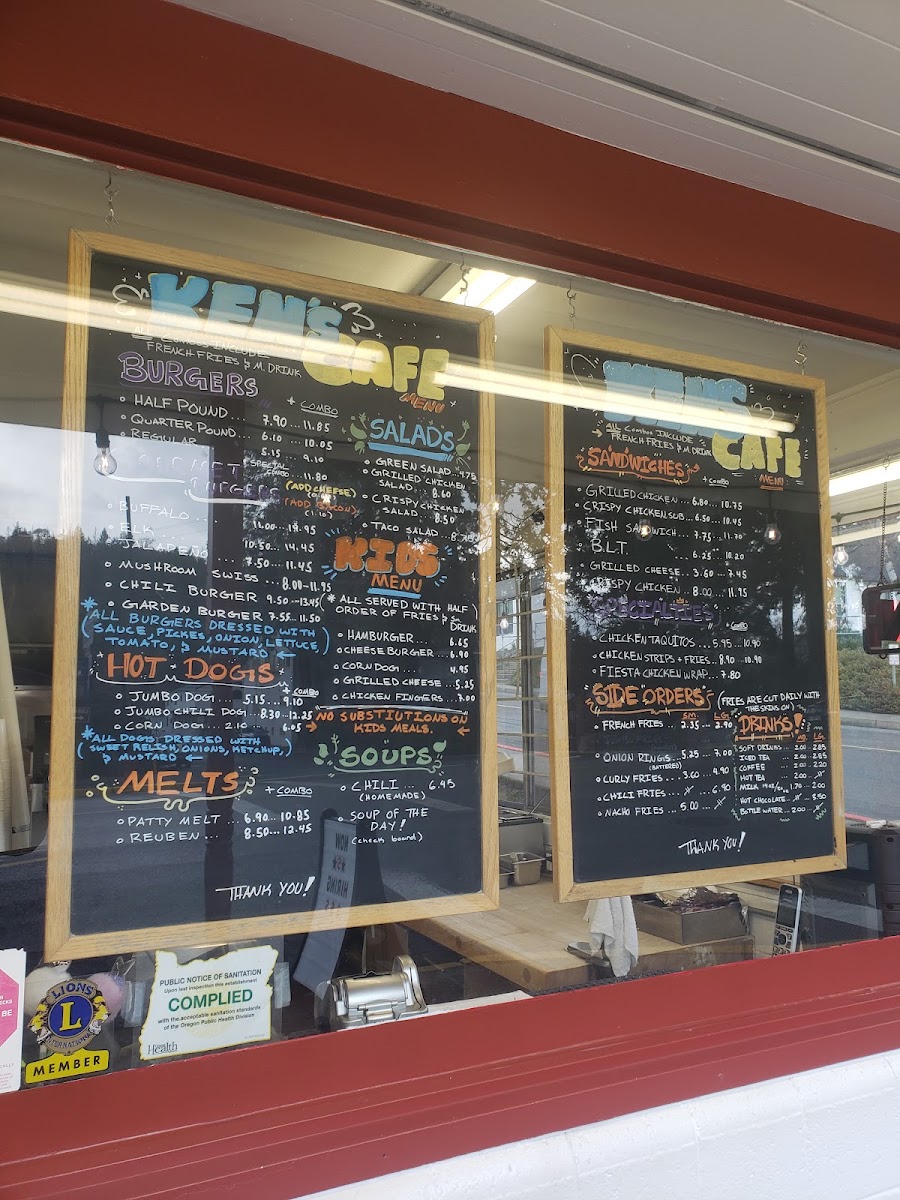 KEN'S
CAFE
MENU
ALL COMBOS INCLUDE
FRENCH FRIES & M. DRINK
BURGERS
+ COMBO
• HALF POUND... 7.90 ... 11.85
• QUARTER POUND... 6.10 ... 10.05
• REGULAR 5.15 9.10
SPECIAL COMBO 11.80
(ADD CHEESE)
(ADD BACON)
BURGERS
• BUFFALO... 11.00 ... 14.95
• ELK 10.50 ... 14.45
JALAPEÑO 7.50 ... 11.45
• MUSHROOM SWISS... 8.00 - 11.95
• CHILI BURGER 9.50 ... 13.45
• GARDEN BURGER 7.55 .. 11.50
* (ALL BURGERS DRESSED WITH
SAUCE, PICKES, ONION, LETTUCE,
TOMATO, & MUSTARD) ←
HOT DOGS
+ COMBO
• JUMBO DOG... 5.15 ... 9.10
• JUMBO CHILI DOG... 8.30 - 12.25
• CORN DOG... 2.10 6.05
* ALL DOGS DRESSED WITH
(SWEET RELISH, ONIONS, KETCHUP,
& MUSTARD) ←
MELTS
+ COMBO
• PATTY MELT... 6.90 ... 10.85
• REUBEN... 8.50 ... 12.45
THANK YOU!
SALADS
• GREEN SALAD 4.75
• GRILLED CHICKEN
SALAD... 8.60
• CRISPY CHICKEN
SALAD... 8.50
• TACO SALAD...
KIDS
MENU
(* ALL SERVED WITH HALF
ORDER OF FRIES & Sm DRINK)
• HAMBURGER... 6.65
• CHEESE BURGER... 6.90
• CORN DOG... 4.95
• GRILLED CHEESE... 5.25
• CHICKEN FINGERS... 7.00
→ NO SUBSTIUTIONS ON
KIDS MEALS. ←
SOUPS
• CHILI... 6.45
(HOMEMADE)
• SOUP OF THE
DAY!
(check board)
KEN'S
CAFE
MENU
→ ALL Combos INCLUDE
FRENCH FRIES & M. DRINK
SANDWICHES
+ COMBO
• GRILLED CHICKEN... 6.80 .. 10.75
• CRISPY CHICKEN SUB... 6.50 ... 10.45
• FISH SANDWICH... 7.75 ... 11.70
• B.L.T. ... 6.25 .. 10.20
• GRILLED CHEESE... 3.60 ... 7.45
CRISPY CHICKEN... 8.00 ... 11.95
SPECIALTIES
+ COMBO
• CHICKEN TAQUITOS... 5.95 ... 10.90
• CHICKEN STRIPS + FRIES... 8.90 .. 10.90
• FIESTA CHICKEN WRAP... 7.80
SIDE ORDERS
(FRIES ARE CUT DAILY WITH
THE SKINS ON)
SM. LG.
• FRENCH FRIES... 2.35 ... 2.90
• ONION RINGS... 5.25 ... 7.00
(BATTERED)
• CURLY FRIES... 3.60 ... 4.90
• CHILI FRIES... 6.90
• NACHO FRIES... 5.00
THANK YOU!
DRINKS!
LG.
SOFT DRINKS... 2.00 2.85
ICED TEA... 2.00 2.85
COFFEE... 2.00 2.20
HOT TEA 2.00
MILK 1.70 ... 2.00
HOT CHOCOLATE... 3.50
BOTTLE WATER... 2.00
NOW
HIRING
LIONS
L
INTERNATIONAL
MEMBER
PUBLIC NOTICE OF SANITATION
Upon last inspection this establishment
COMPLIED
with the acceptable sanitation standards
of the Oregon Public Health Division
Health